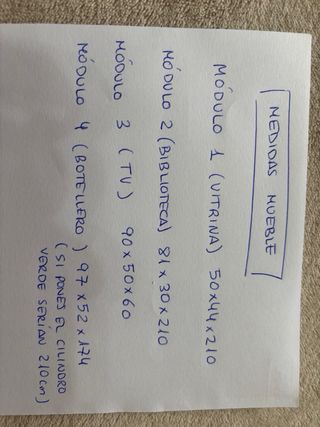 MEDIDAS MUEBLE
MÓDULO 1 (VITRINA) 50x44x210
MÓDULO 2 (BIBLIOTECA) 81x30x210
MÓDULO 3 (TV) 90x50x60
MÓDULO 4 (BOTELLERO) 97x52x174
(SI PONES EL CILINDRO
VERDE SERÍAN 210cm)